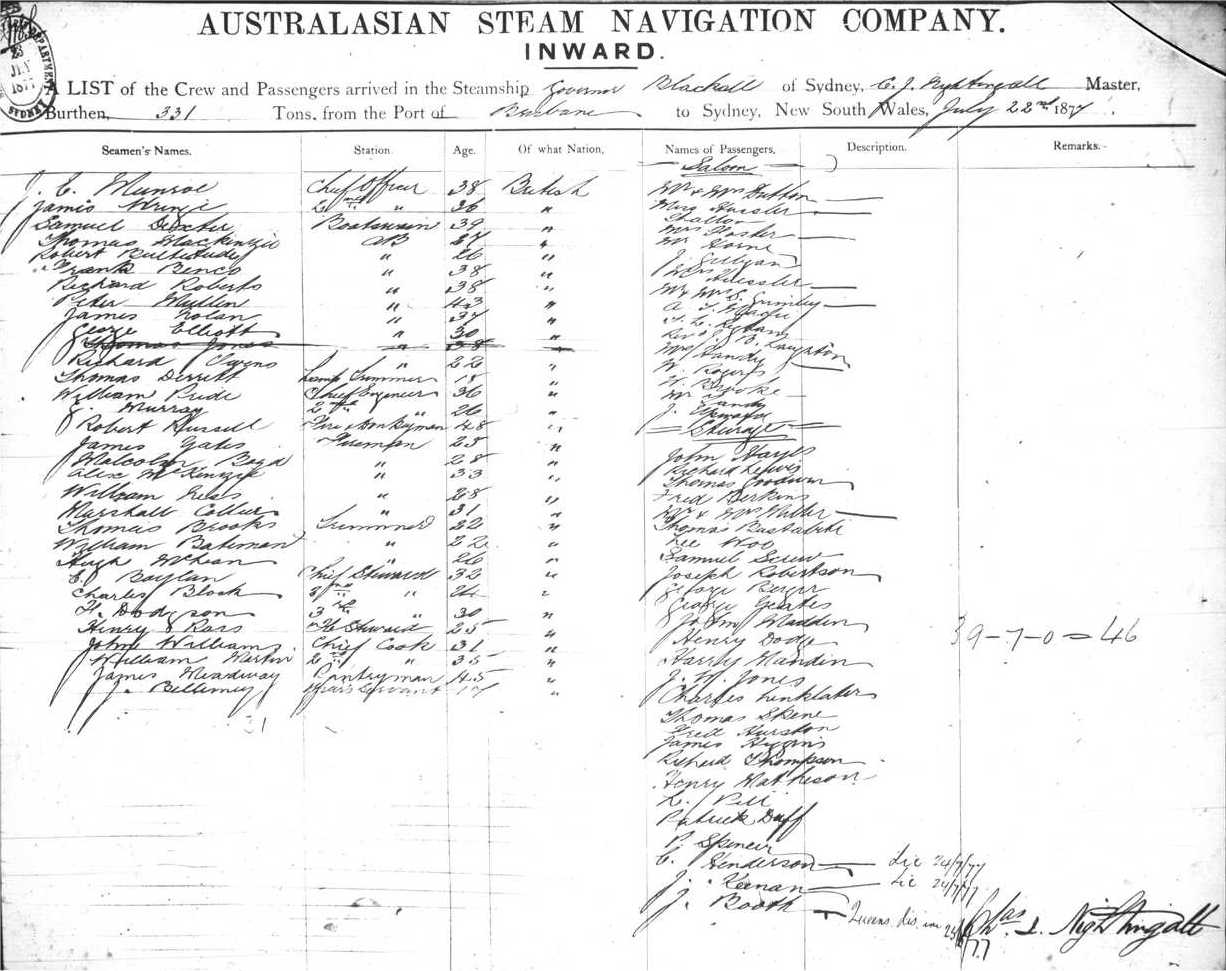 AUSTRALASIAN STEAM NAVIGATION COMPANY.
INWARD.
A LIST of the Crew and Passengers arrived in the Steamship Governor Blackall of Sydney, C. J. Nightingall Master,
Burthen, 331 Tons, from the Port of Brisbane to Sydney, New South Wales, July 22nd 1877
Seamen's Names. Station. Age. Of what Nation, Names of Passengers, Description. Remarks.
Saloon
J. E. Munroe Chief Officer 38 British
James 2nd " 36 "
Samuel Dexter Boatswain 39 "
Thomas Mackenzie AB 27 "
Robert " 26 "
Frank Benco " 38 "
Richard Roberts " 38 "
Peter Mullen " 43 "
James Nolan " 37 "
George Elliott " 30 "
Thomas Jones " 38 "
Richard Owens " 22 "
Thomas Derritt Lamp Trimmer 18 "
William Pride Chief Engineer 36 "
J. Murray 2nd " 26 "
Robert Russell Fire & Donkeyman 48 "
James Yates Fireman 25 "
Malcolm Boyd " 28 "
Alex McKenzie " 33 "
William " 28 "
Marshall Collier " 31 "
Thomas Brooks Trimmer 22 "
William Bateman " 22 "
Hugh McLean " 26 "
E. Boylan Chief Steward 32 "
Charles Block 2nd " 24 "
H. Dodgson 3rd " 30 "
Henry Ross F.C. Steward 25 "
John Williams Chief Cook 31 "
William Martin 2nd " 35 "
James Meadway Pantryman 45 "
J. Bellamey Servant 17 "
31
Mr & Mrs Dutton
Miss
Mrs Foster
Mr Horne
J.
Mrs
Mr & Mrs E. Grimley
A.
Rev. J. B. Laughton
Mrs Handy
W. Rogers
W. Brooke
Mr
J.
Steerage
John Hayes
Richard Lewis
Thomas Goodwin
Fred Perkins
Mr & Mrs Miller
Thomas
Lee Woo
Samuel Screw
Joseph Robertson
George Berger
George Yeates
John Madden
Henry Dodge
Harry Manden
J. W. Jones
Charles Linklater
Thomas Skene
Fred Hurston
James Higgins
Richard Thompson
Henry Matheson
L. Pill
Patrick Duff
P. Spencer
C. Henderson Lic 24/7/77
J. Keenan Lic 24/7/77
J. Booth Queens
39-7-0=46
Chas. J. Nightingall